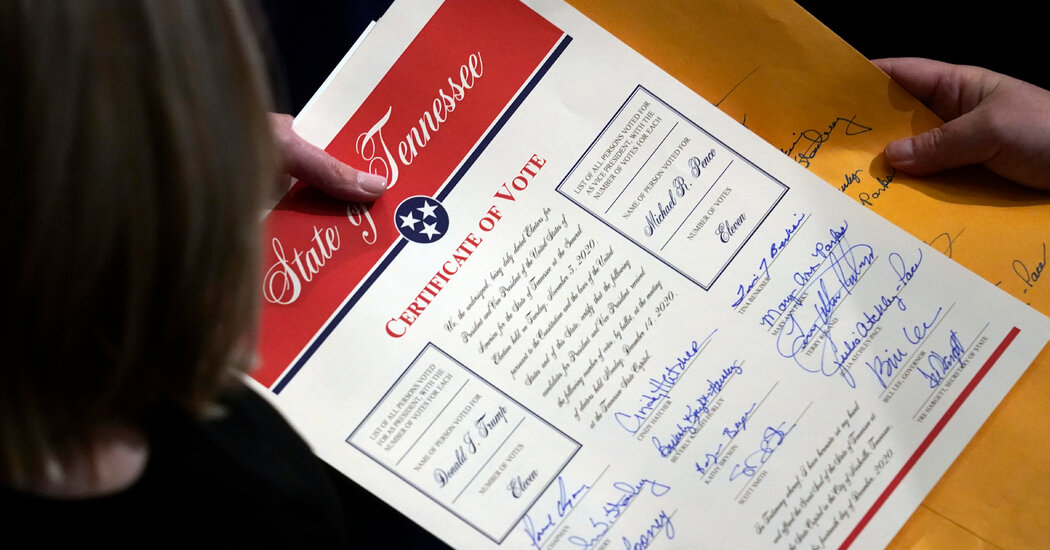 State of Tennessee
CERTIFICATE OF VOTE
We, the undersigned being duly elected Electors for
President and Vice President of the United States of
America for the State of Tennessee at the General
Election held on Tuesday, November 3, 2020,
pursuant to the Constitution and the laws of the United
States and of this State, certify that the following
candidates for President and Vice President received
the following number of votes, by ballot at the meeting
of electors held Monday, December 14, 2020,
at the Tennessee State Capitol.
LIST OF ALL PERSONS VOTED
AS PRESIDENT, WITH THE
NUMBER OF VOTES FOR EACH
NAME OF PERSON VOTED FOR
Donald J. Trump
NUMBER OF VOTES
Eleven
LIST OF ALL PERSONS VOTED FOR
AS VICE PRESIDENT, WITH THE
NUMBER OF VOTES FOR EACH
NAME OF PERSON VOTED FOR
Michael R. Pence
NUMBER OF VOTES
Eleven
CHAPMAN
Cindy Hatcher
CINDY HATCHER
BEVERLY KNIGHT-HURLEY
KATHY BRYSON
SCOTT SMITH
Tina Benkiser
TINA BENKISER
Mary Ann Parks
MARY ANN PARKS
TERRY ROLAND
Julia Atchley-Pace
JULIA ATCHLEY PACE
Bill Lee
BILL LEE, GOVERNOR
TRE HARGETT, SECRETARY OF STATE
In Testimony whereof I have hereunto set my hand
and affixed the Great Seal of the State of Tennessee at
the State Capitol in the City of Nashville, Tennessee,
the fourteenth day of December, 2020
Parks
-Pace